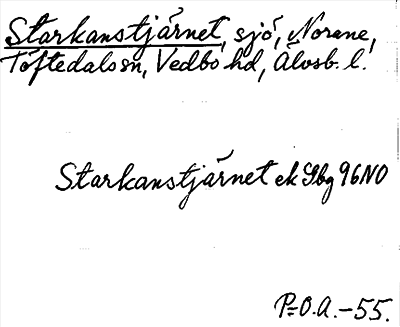 Starkanstjärnet, sjö, Norane,
Töftedals sn, Vedbo hd, Älvsb. l.
Starkanstjärnet ek Gbg 96NO
P-O.A.-55.